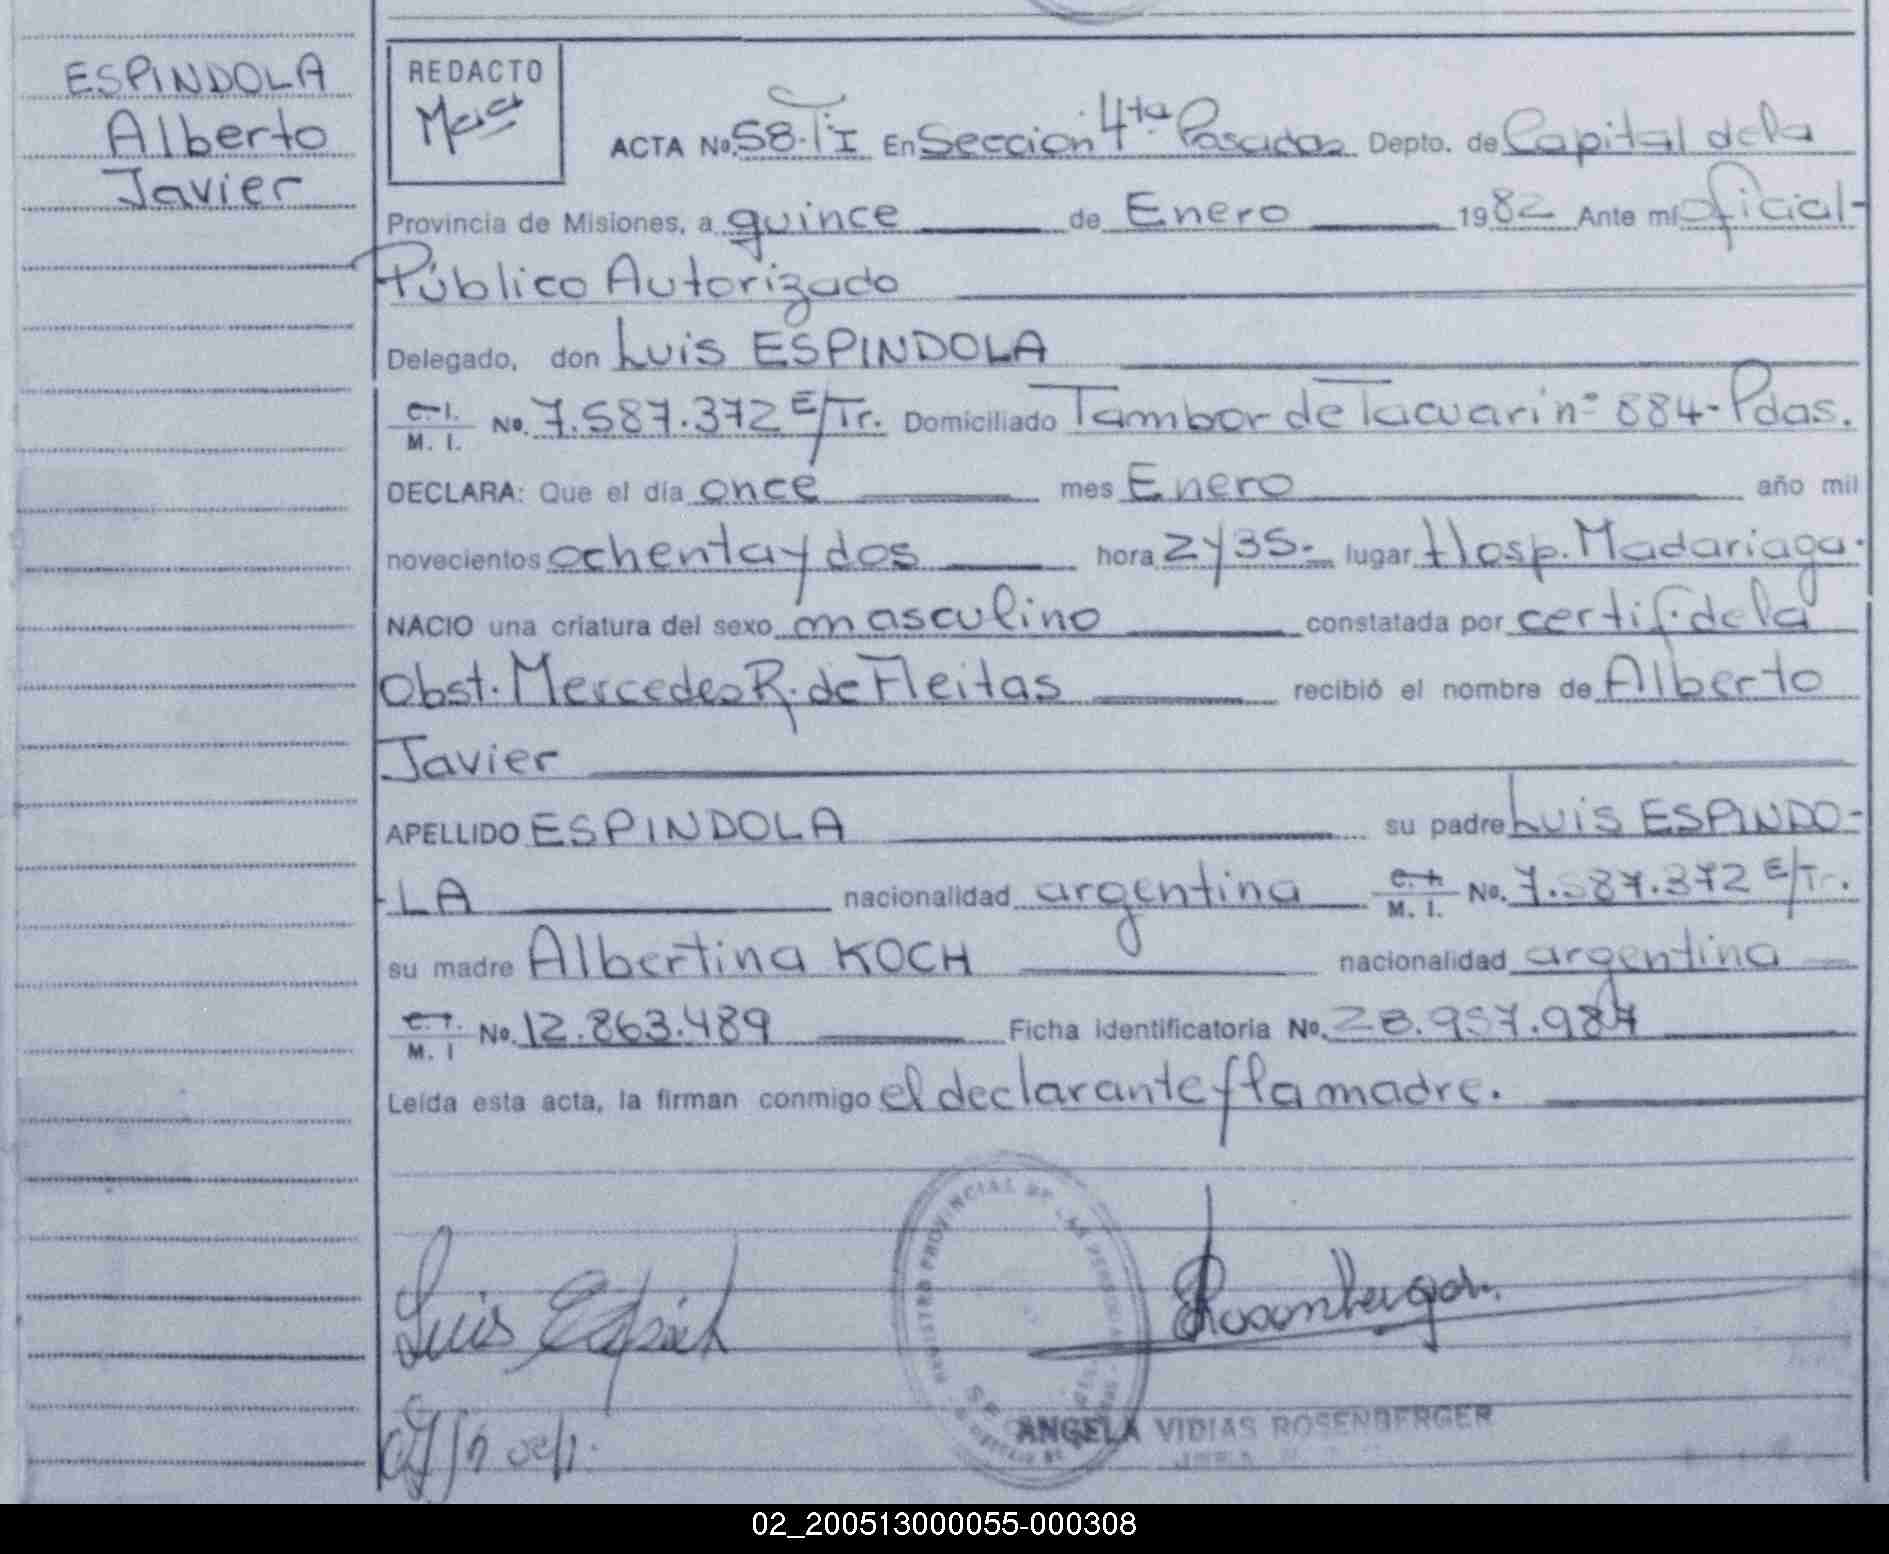 ESPINDOLA
Alberto
Javier
REDACTO
ACTA No. 58-TºI En Sección 4ta Posadas Depto. de Capital dela
Provincia de Misiones, a quince de Enero 1982 Ante mí oficial-
Público Autorizado
Delegado, don Luis ESPINDOLA
C.I. M. I. No. 7.587.372 E/Tr. Domiciliado Tambor de Tacuari nº 884- Pdas.
DECLARA: Que el día once mes Enero año mil
novecientos ochenta y dos hora 2 y 35.- lugar Hosp. Madariaga.
NACIO una criatura del sexo masculino constatada por certif. de la
Obst. Mercedes R. de Fleitas recibió el nombre de Alberto
Javier
APELLIDO ESPINDOLA su padre Luis ESPINDO-
-LA nacionalidad argentina C.I. M. I. No. 7.587.372 E/Tr.
su madre Albertina KOCH nacionalidad argentina
C.I. M. I No. 12.863.489 Ficha identificatoria No. 28.957.987
Leída esta acta, la firman conmigo el declarante y la madre.
REGISTRO PROVINCIAL DE LAS PERSONAS
Luis
ANGELA VIDIAS ROSENBERGER
02_200513000055-000308